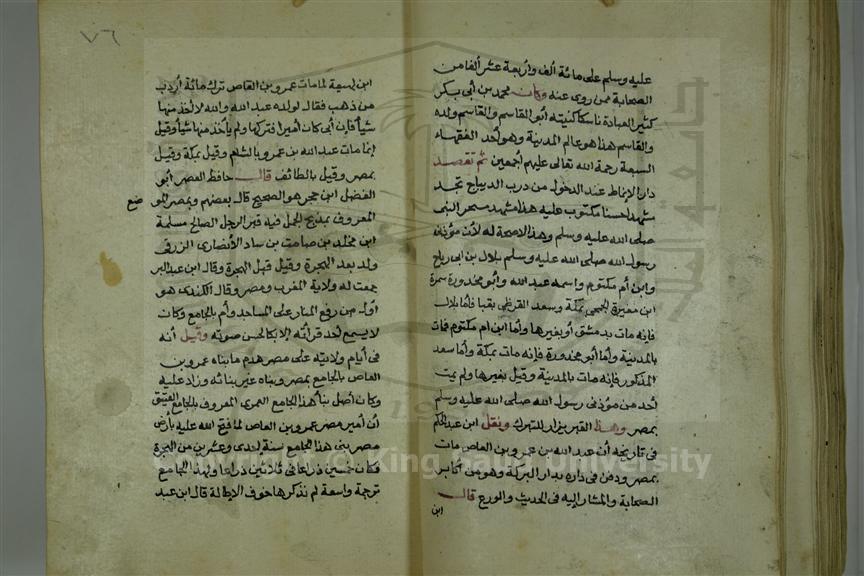 عليه وسلم على مائة ألف وأربعة عشر ألفا من
الصحابة ممن روى عنه وكان محمد بن أبي بكر
كثير العبادة ناسكا كنيته أبو القاسم والقاسم ولده
والقاسم هذا هو عالم المدينة وهو أحد الفقهاء
السبعة رحمة الله تعالى عليهم أجمعين ثم تقصد
دار الانماط عند الدخول من درب الديباج تجد
مشهدا حسنا مكتوب عليه هذا مشهد مسحر النبي
صلى الله عليه وسلم وهذا لا صحة له لأن مؤذنه
رسول الله صلى الله عليه وسلم بلال بن ابى رباح
وابن أم مكتوم واسمه عبد الله وأبو محذورة سمرة
ابن مغيرة الجمحي بمكة وسعد القرظي بقبا فاما بلال
فإنه مات بدمشق أو بغيرها وأما ابن ام مكتوم فمات
بالمدينة وأما أبو محذورة فإنه مات بمكة وأما سعد
المذكور فإنه مات بالمدينة وقيل بغيرها ولم يمت
أحد من مؤذنى رسول الله صلى الله عليه وسلم
بمصر وهذا القبر يزار للتبرك ونقل ابن عبد الحكم
فى تاريخه أن عبد الله بن عمرو بن العاص مات
بمصر ودفن فى داره بدار البركة وهو من أكابر
الصحابة والمشار إليه فى الحديث والورع قال
ابن
٧٦
ابن لهيعة لما مات عمرو بن العاص ترك مائة أردب
من ذهب فقال لولده عبد الله والله لا أخذ منها
شيأ فإن أبى كان أميرا فتركها ولم يأخذ منها شيأ وقيل
إنما مات عبد الله بن عمرو بالشام وقيل بمكة وقيل
بمصر وقيل بالطائف قال حافظ العصر أبو
الفضل ابن حجر هو الصحيح قاله بعضهم وبمصر الموضع
المعروف بمذبح الجمل فيه قبر الرجل الصالح مسلمة
ابن مخلد بن صامت بن ساد الأنصارى الزرقى
ولد بعد الهجرة وقيل قبل الهجرة وقال ابن عبد البر
جمعت له ولاية المغرب ومصر وقال الكندى هو
أول من رفع المنار على المساجد وأم بالجامع وكان
لا يسمع أحد قرأته إلا بكا لحسن صوته وقيل أنه
فى أيام ولايته على مصر هدم ما بناه عمرو بن
العاص بالجامع بمصر وبناه غير بنائه وزاد عليه
وكان أصل بنا هذا الجامع العمرى المعروف بالجامع العتيق
أن أمير مصر عمرو بن العاص لما فتح الله عليه بأرض
مصر بنى هذا الجامع سنة إحدى وعشرين من الهجرة
فكان خمسين ذراعا فى ثلاثين ذراعا ولهذا الجامع
ترجمة واسعة لم نذكرها خوف الإطالة قال ابن عبد
King Saud University
جامعة الملك